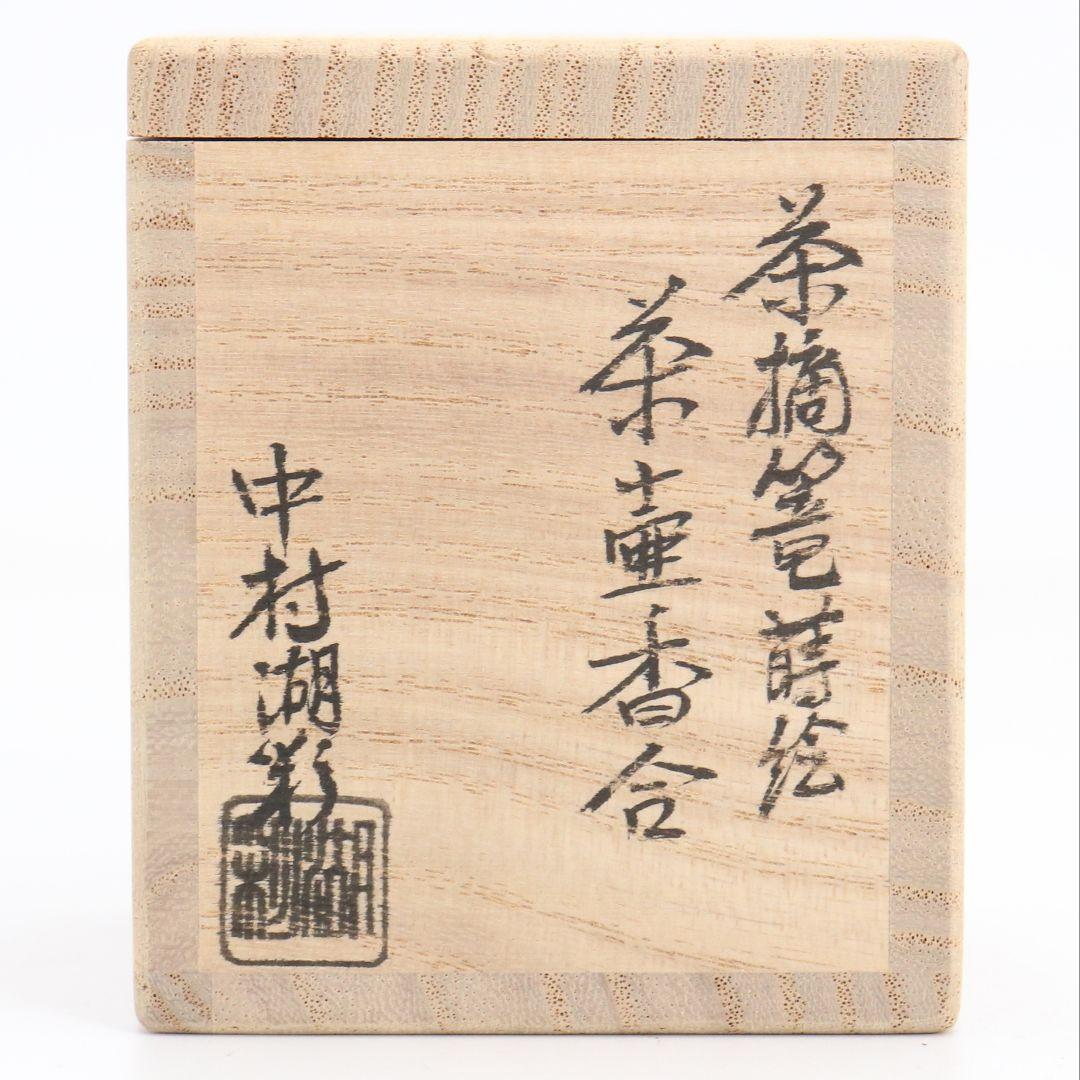 茶摘篭蒔絵
茶壷香合
中村湖彩